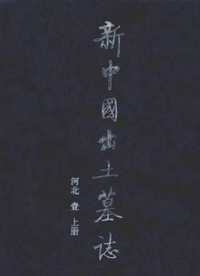 新中國出土墓誌
河北 壹 上册